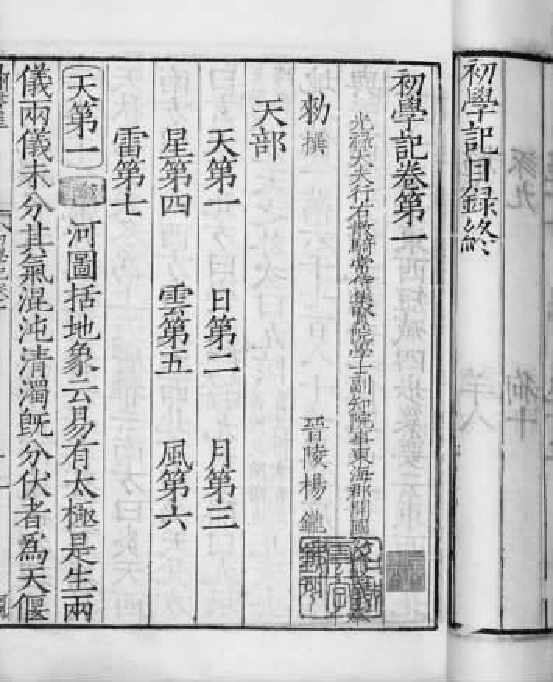 初學記目録終
初學記卷第一
光祿大夫行右散騎常侍集賢院學士副知院事東海郡開國
勑撰 晉陵楊鑨
天部
天第一 日第二 月第三
星第四 雲第五 風第六
雷第七
天第一 河圖括地象云易有太極是生兩
儀兩儀未分其氣混沌清濁旣分伏者爲天偃